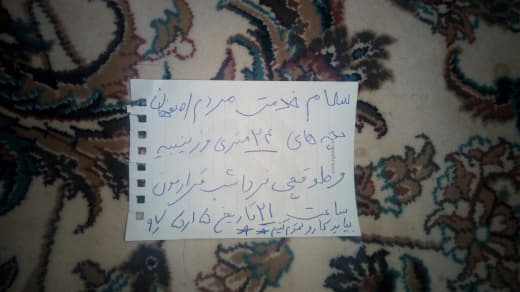 سلام خدمت مردم اصفهان
بچه های ۲۴ متری و زینبیه
و طوقچی فردا شب قرارمون
ساعت ۲۱ تاریخ ۱۵/۵/۹۷
بیاید کارو تموم کنیم